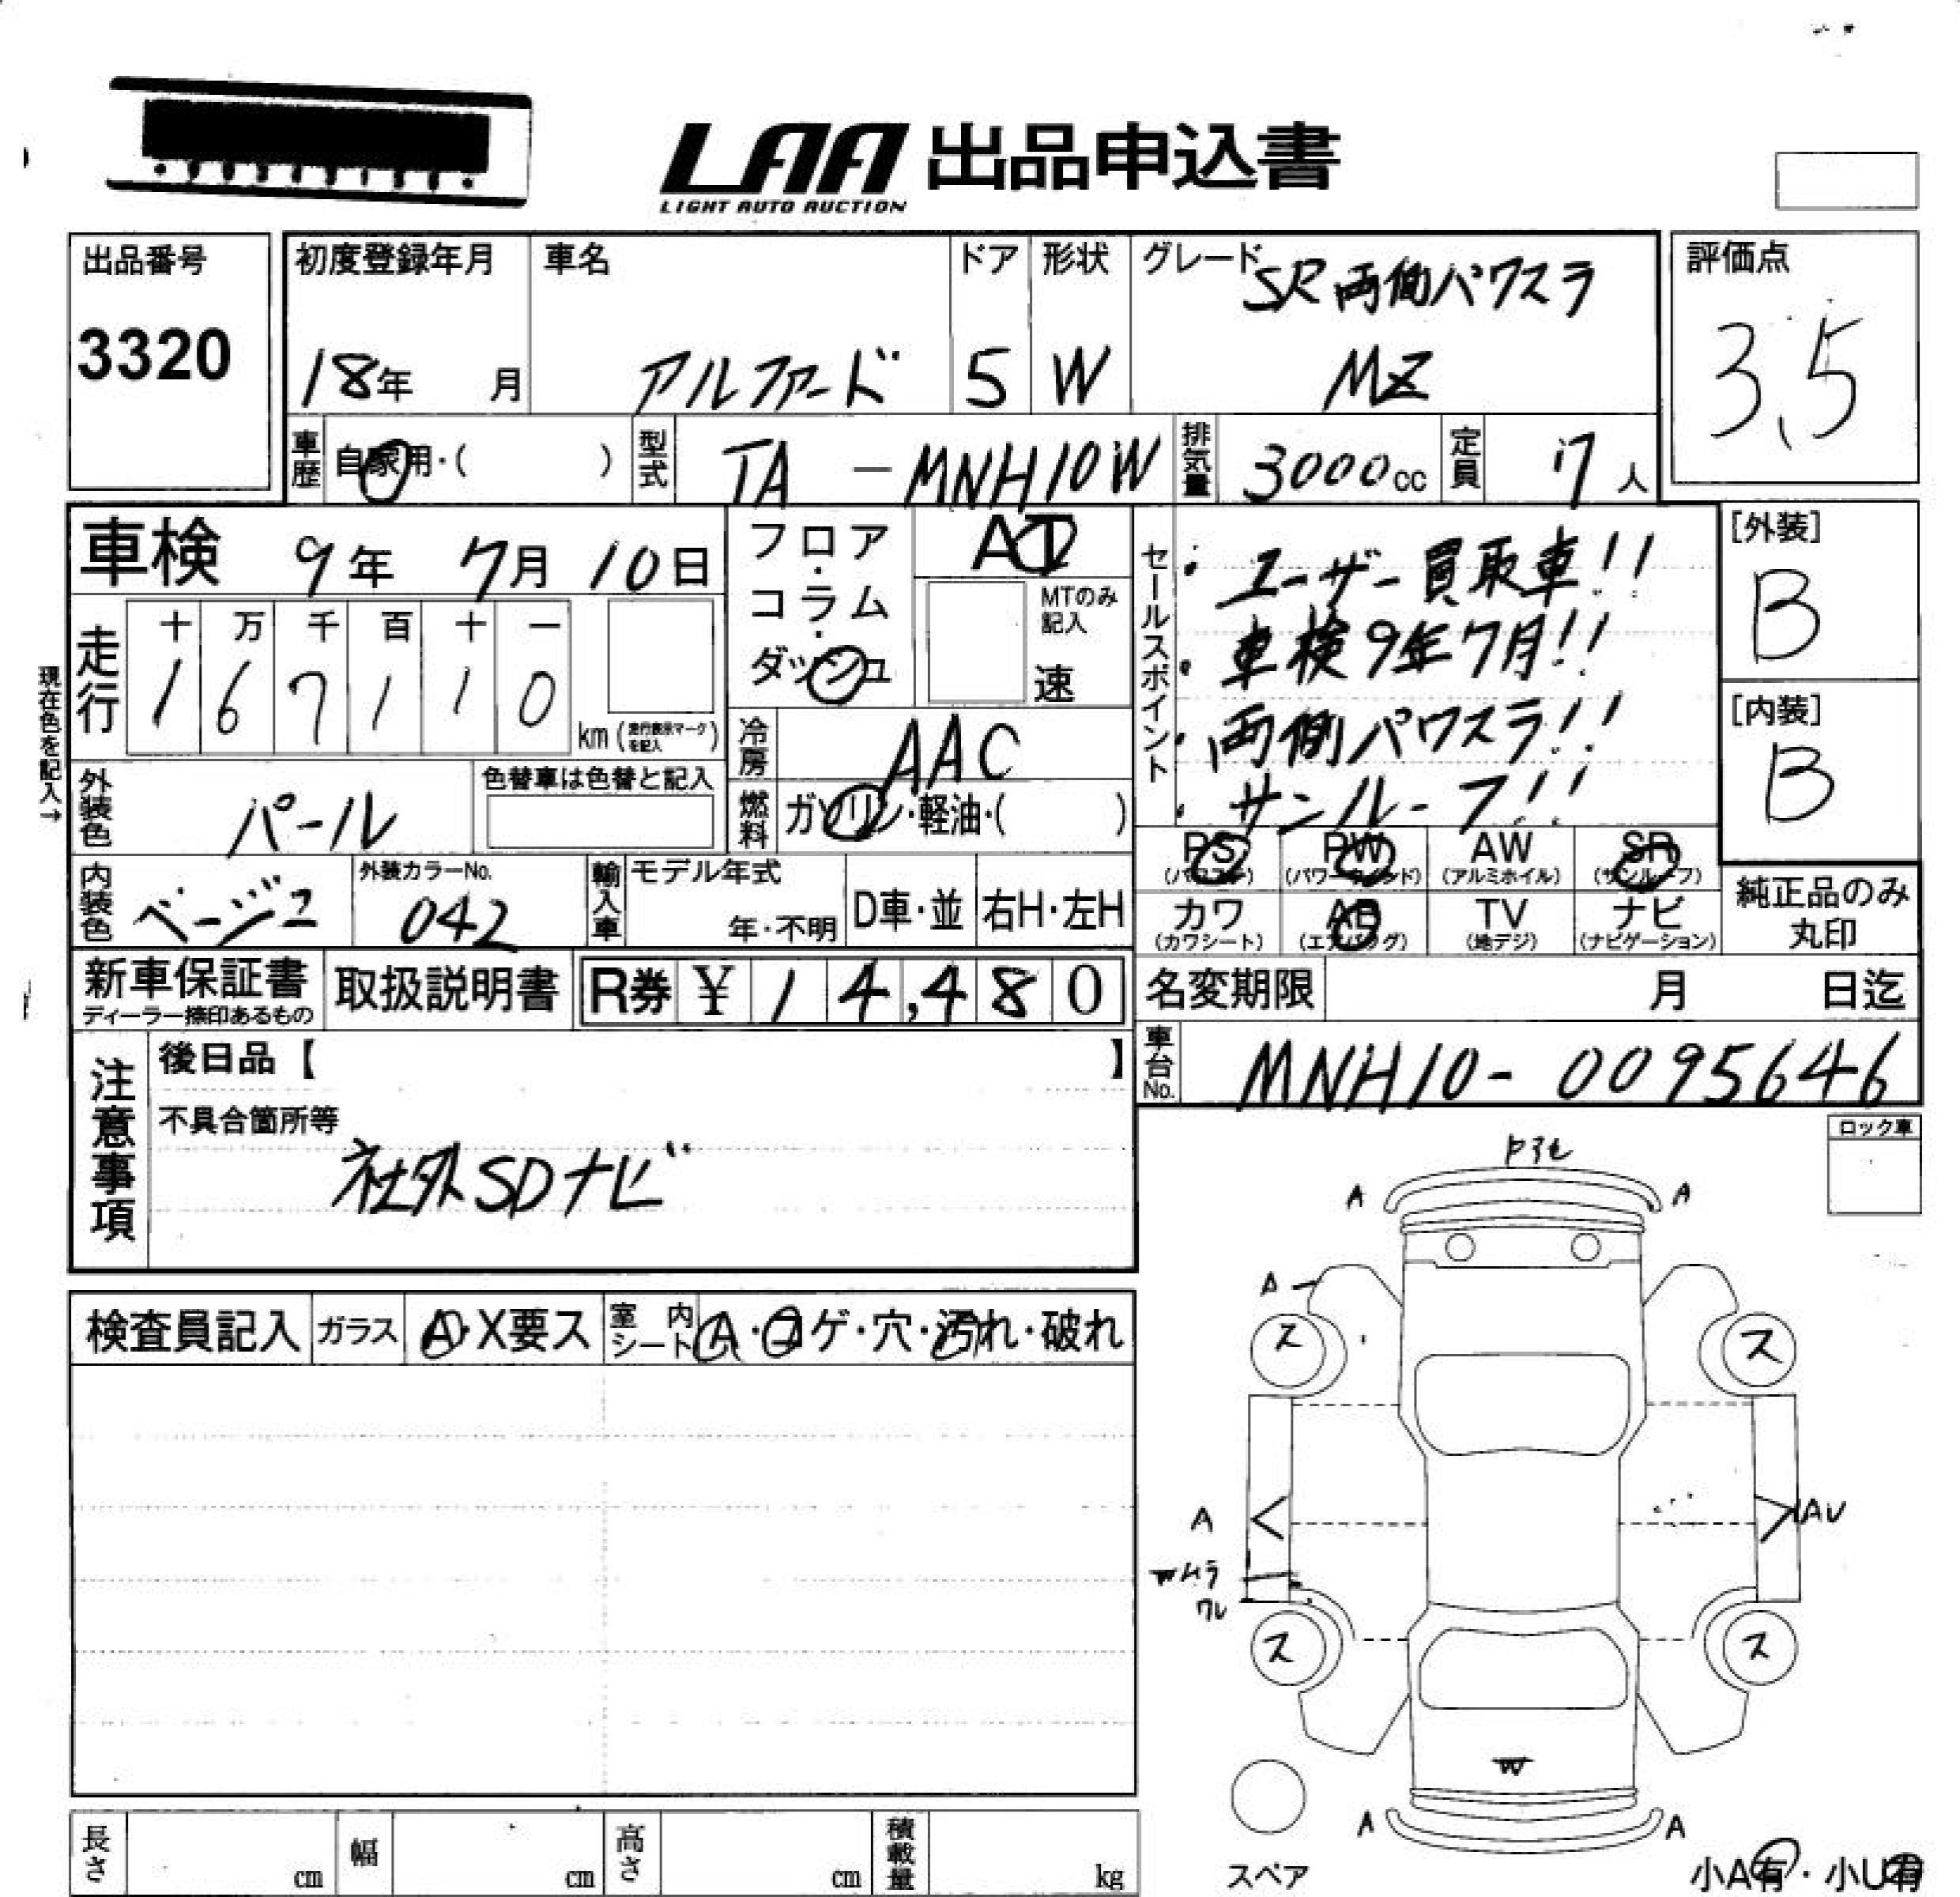 LAA 出品申込書
LIGHT AUTO AUCTION
出品番号
3320
初度登録年月
18年 月
車名
アルファード
ドア
5
形状
W
グレード
SR 両側パワスラ
MZ
評価点
3.5
車歴 自家用・( )
型式 TA - MNH10W
排気量 3000cc
定員 7人
車検 9年 7月 10日
走行
十 万 千 百 十 一
1 6 7 1 1 0
km(走行表示マークを記入)
現在色を記入→
フロア・コラム・ダッシュ
AT
MTのみ記入
速
冷房 AAC
燃料 ガソリン・軽油・( )
セールスポイント
・ユーザー買取車!!
・車検9年7月!!
・両側パワスラ!!
・サンルーフ!!
[外装]
B
[内装]
B
外装色 パール
色替車は色替と記入
内装色 ベージュ
外装カラーNo.
042
輸入車
モデル年式
年・不明
D車・並
右H・左H
PS (パワステ)
PW (パワーウインド)
AW (アルミホイル)
SR (サンルーフ)
カワ (カワシート)
AB (エアバッグ)
TV (地デジ)
ナビ (ナビゲーション)
純正品のみ
丸印
新車保証書
ディーラー捺印あるもの
取扱説明書
R券 ¥ 14,480
名変期限 月 日迄
車台No. MNH10-0095646
注意事項
後日品【 】
不具合箇所等
社外SDナビ
ロック車
検査員記入
ガラス A・X要ス
室内シート A・コゲ・穴・汚れ・破れ
A
A
A
ス
ス
A
AU
ムラ
ワレ
ス
ス
W
A
A
スペア
小A有・小U有
長さ cm
幅 cm
高さ cm
積載量 kg